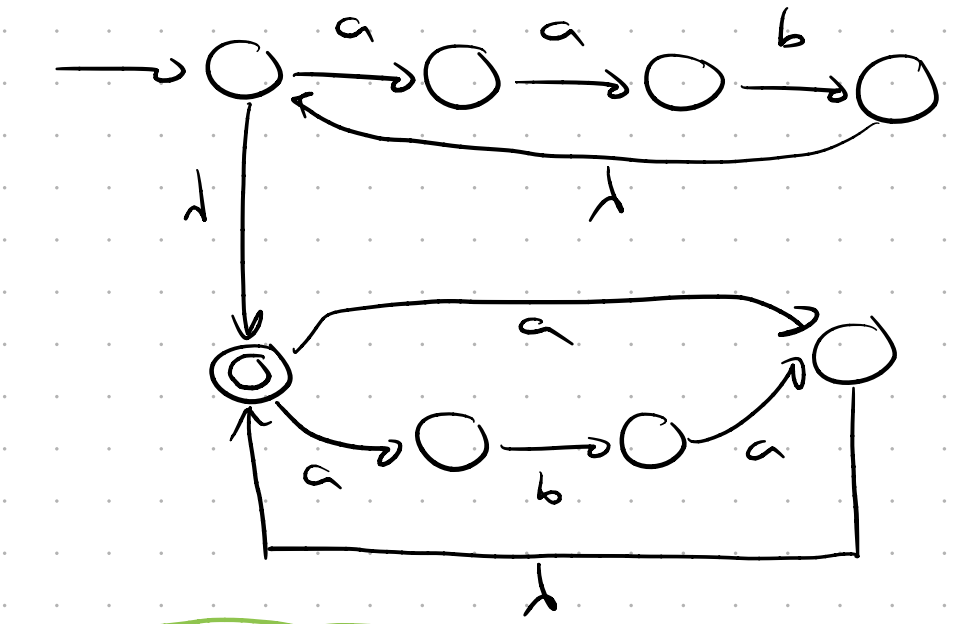 a a b
λ
λ
a
a b a
λ